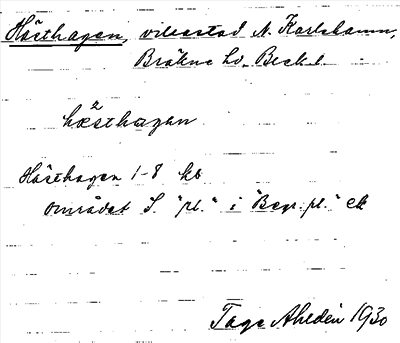 Hästhagen, villastad N. Karlshamn,
Bräkne hd. Blek. l.
2
hæsthagen
Hästhagen 1-8 kb
området S. "pl." i "Begr.pl." ek
Tage Ahldén 1930